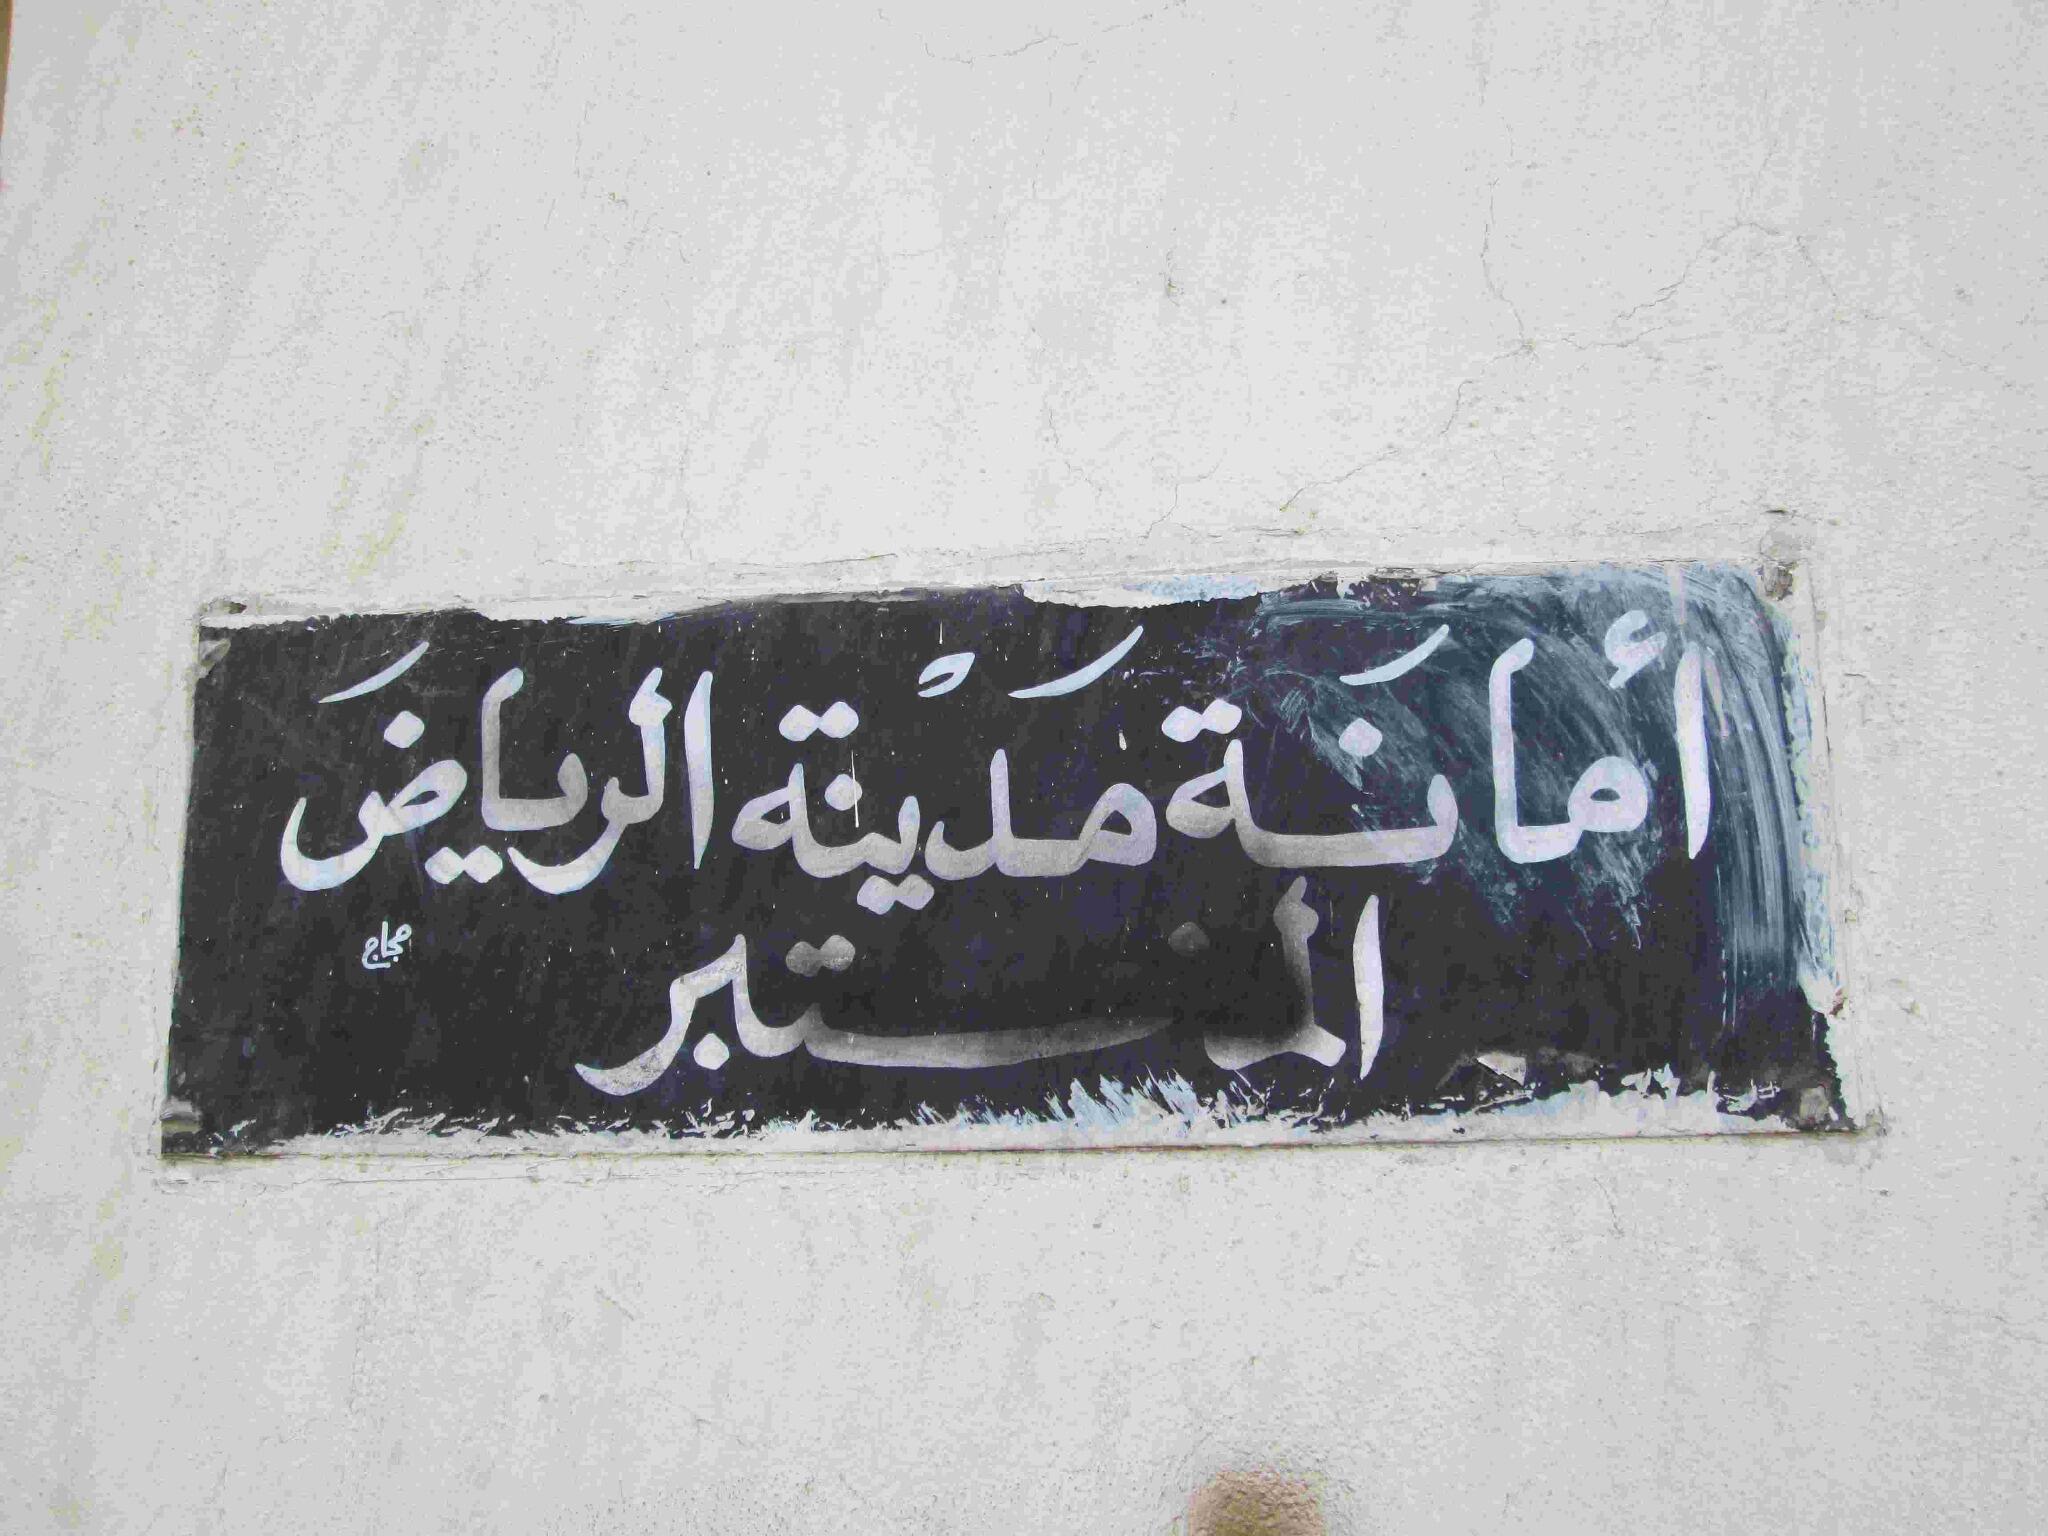 أمانَة مَدْينة الرياضَ
المختبر
حجاج